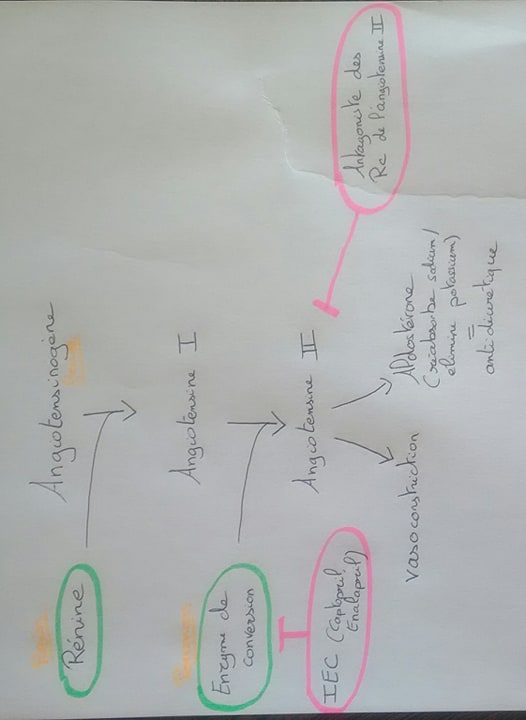 Angiotensinogène
Rénine
Angiotensine I
Enzyme de
conversion
Angiotensine II
IEC (Captopril,
Enalapril)
Antagoniste des
Rc de l'angiotensine II
vasoconstriction
Aldostérone
(réabsorbe sodium/
élimine potassium)
=
antidiurétique